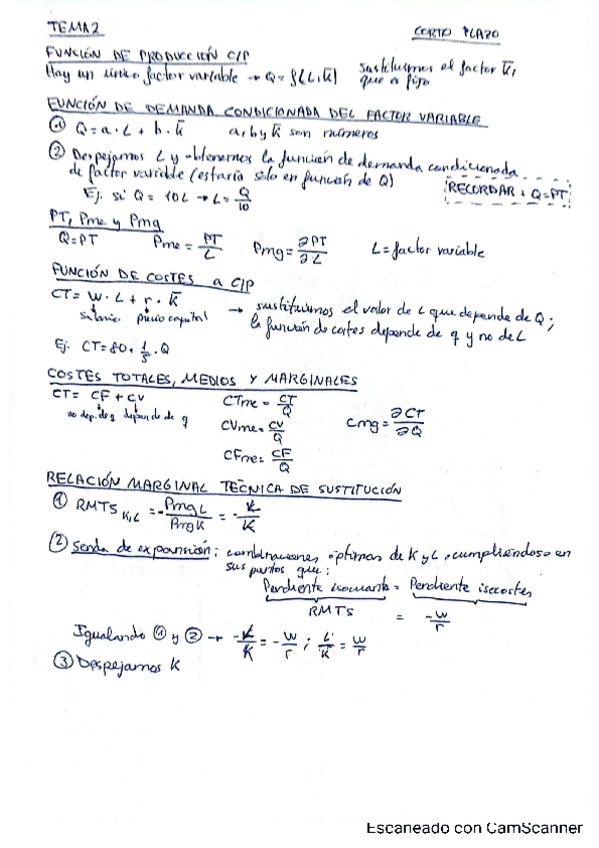 TEMA 2
CORTO PLAZO
FUNCIÓN DE PRODUCCIÓN C/P
Hay un único factor variable → Q = f(L, K̄)
Sustituimos el factor K̄,
que es fijo
FUNCIÓN DE DEMANDA CONDICIONADA DEL FACTOR VARIABLE
① Q = a · L + b · K̄ a, b y K̄ son números
② Despejamos L y obtenemos la función de demanda condicionada
de factor variable (estaría solo en función de Q)
RECORDAR: Q=PT
Ej. si Q = 10L → L = Q/10
PT, Pme y Pmg
Q=PT Pme = PT/L Pmg = ∂PT/∂L L = factor variable
FUNCIÓN DE COSTES a C/P
CT = w · L + r · K̄ → sustituimos el valor de L que depende de Q;
salario precio capital la función de costes depende de q y no de L
Ej. CT = 80 + 1/5 · Q
COSTES TOTALES, MEDIOS Y MARGINALES
CT = CF + CV CTme = CT/Q
no dep. de q depende de q
CVme = CV/Q Cmg = ∂CT/∂Q
CFme = CF/Q
RELACIÓN MARGINAL TÉCNICA DE SUSTITUCIÓN
① RMTS K,L = - PmgL/PmgK =
② Senda de expansión: combinaciones óptimas de K y L, cumpliéndose en
sus puntos que:
Pendiente isocuanta = Pendiente isocostes
RMTS = -w/r
Igualando ① y ② → = -w/r ; L/K = w/r
③ Despejamos K
Escaneado con CamScanner